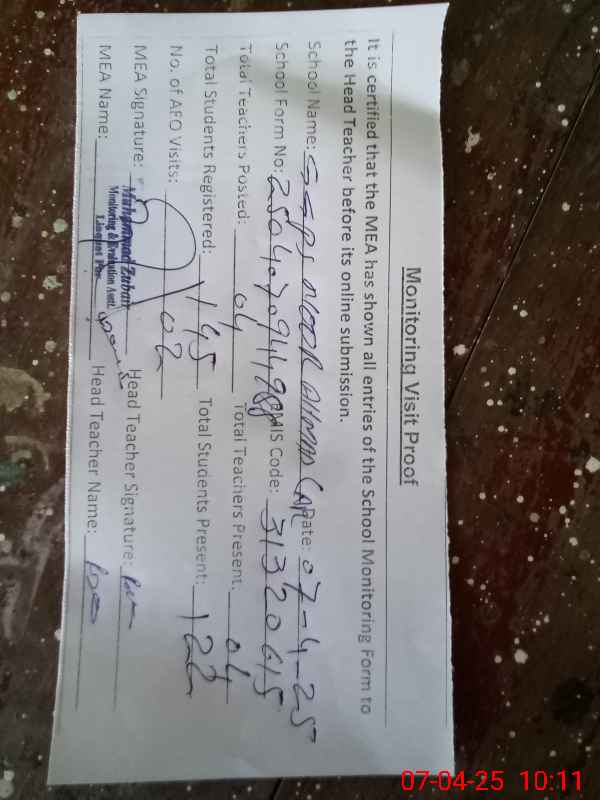 Monitoring Visit Proof
It is certified that the MEA has shown all entries of the School Monitoring Form to
the Head Teacher before its online submission.
School Name: GGPS NOOR AHMAD Date: 07-4-25
School Form No: EMIS Code: 31320615
Total Teachers Posted: 04 Total Teachers Present: 04
Total Students Registered: 145 Total Students Present: 122
No. of AEO Visits: 02
MEA Signature: Head Teacher Signature:
MEA Name: Head Teacher Name:
Muhammad Zubair
Monitoring & Evaluation Asstt:
07-04-25 10:11